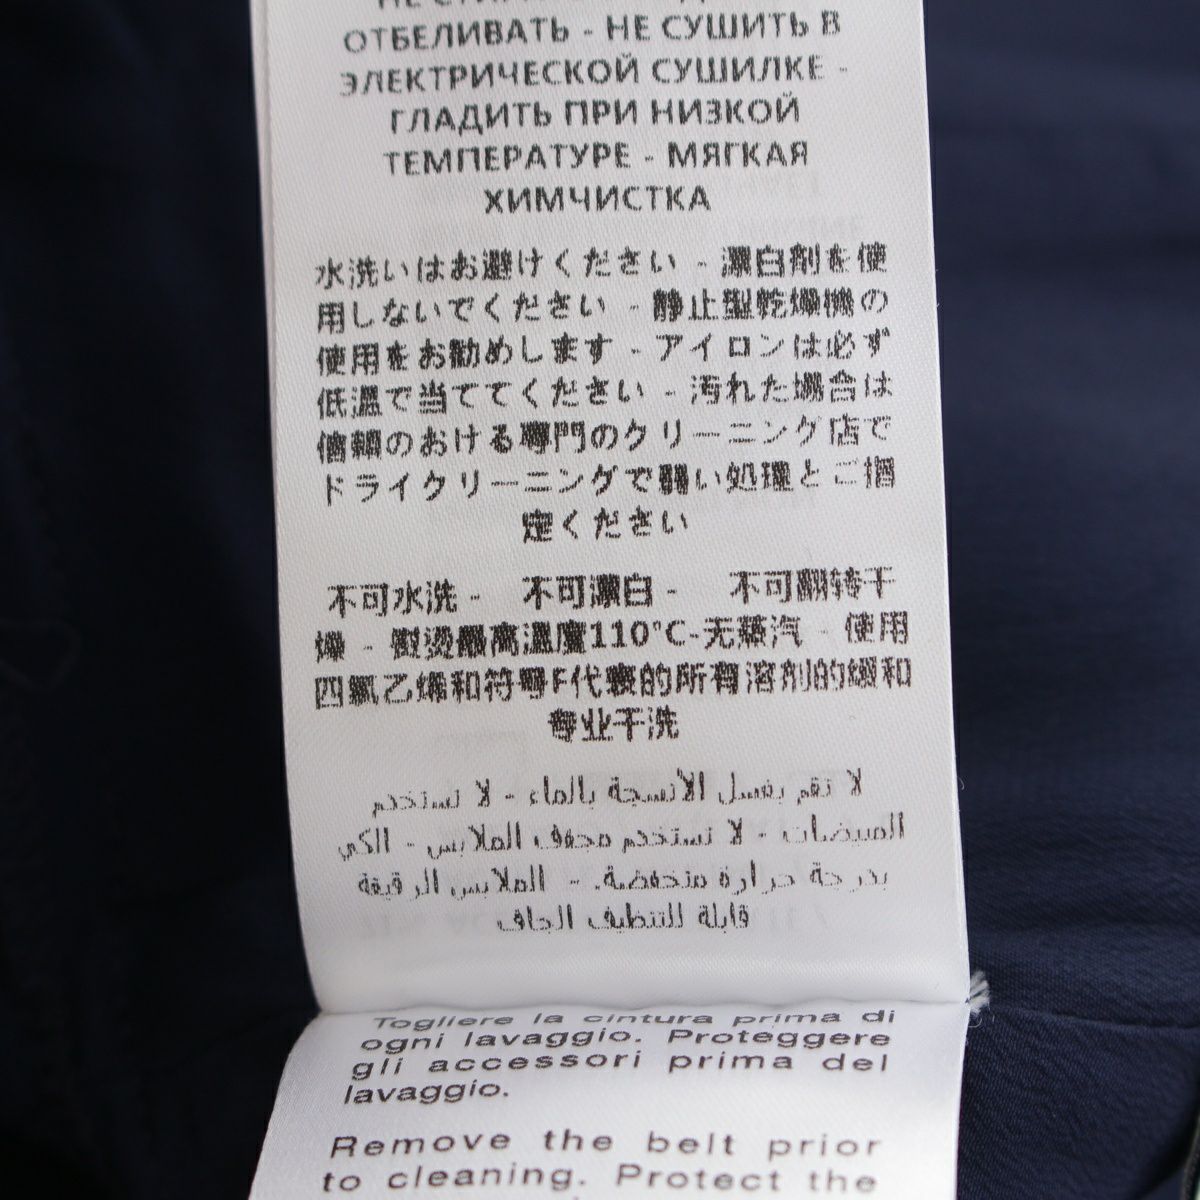 ОТБЕЛИВАТЬ - НЕ СУШИТЬ В
ЭЛЕКТРИЧЕСКОЙ СУШИЛКЕ -
ГЛАДИТЬ ПРИ НИЗКОЙ
ТЕМПЕРАТУРЕ - МЯГКАЯ
ХИМЧИСТКА
水洗いはお避けください - 漂白剤を使
用しないでください - 静止型乾燥機の
使用をお勧めします - アイロンは必ず
低温で当ててください - 汚れた場合は
信頼のおける専門のクリーニング店で
ドライクリーニングで弱い処理とご指
定ください
不可水洗 - 不可漂白 - 不可翻转干
燥 - 熨烫最高温度110°C-无蒸汽 - 使用
四氯乙烯和符号F代表的所有溶剂的缓和
专业干洗
لا تقم بغسل الأنسجة بالماء - لا تستخدم
المبيضات - لا تستخدم مجفف الملابس - الكي
بدرجة حرارة منخفضة. - الملابس الرقيقة
قابلة للتنظيف الجاف
Togliere la cintura prima di
ogni lavaggio. Proteggere
gli accessori prima del
lavaggio.
Remove the belt prior
to cleaning. Protect the